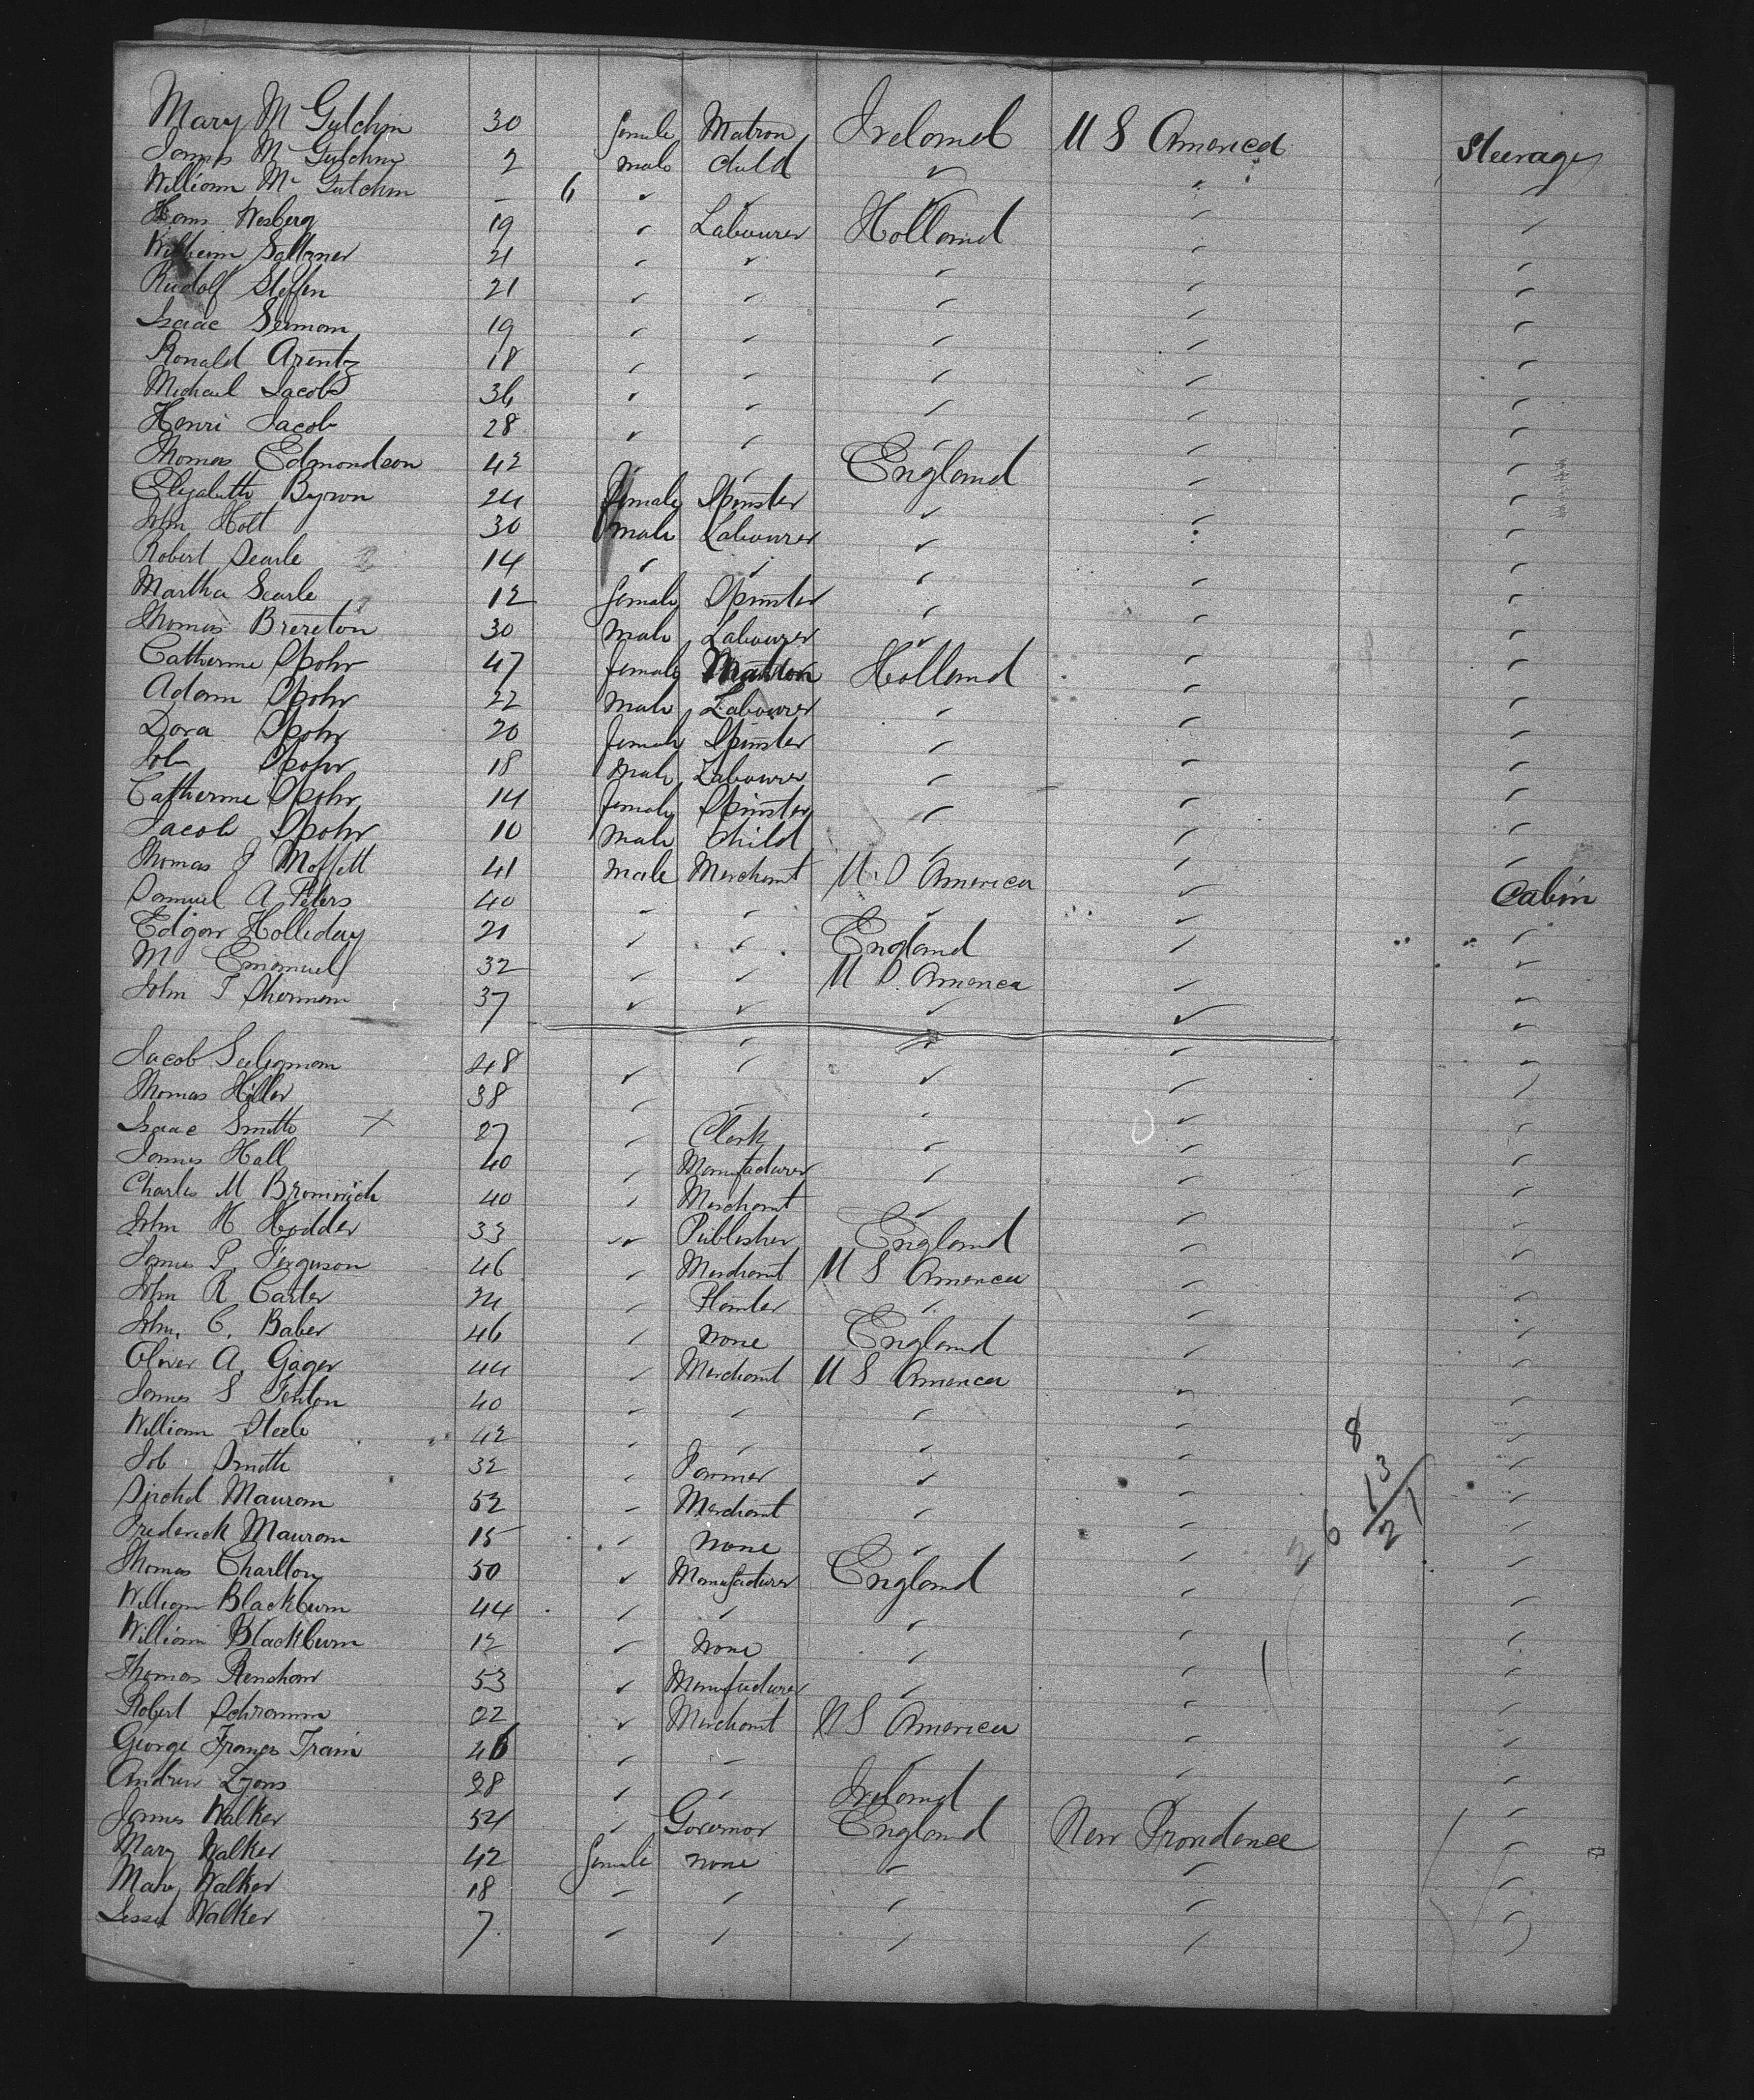 Mary Mc Gutchin 30 female Matron Ireland U S America Steerage
James Mc Gutchin 2 male child ✓ ✓ ✓
William Mc Gutchin - 6 ✓ ✓ ✓ ✓ ✓
Hans Wesberg 19 ✓ Labourer Holland ✓ ✓
Wilhelm Sallzner 21 ✓ ✓ ✓ ✓ ✓
Rudolf Steffen 21 ✓ ✓ ✓ ✓ ✓
Isaac 19 ✓ ✓ ✓ ✓ ✓
Ronald Arentz 18 ✓ ✓ ✓ ✓ ✓
Michael Jacobs 36 ✓ ✓ ✓ ✓ ✓
Henri Jacob 28 ✓ ✓ ✓ ✓ ✓
Thomas Edmondson 42 ✓ ✓ England ✓ ✓
Elizabeth Byron 24 female Spinster ✓ ✓ ✓
John Holt 30 male Labourer ✓ ✓ ✓
Robert Searle 14 ✓ ✓ ✓ ✓ ✓
Martha Searle 12 female Spinster ✓ ✓ ✓
Thomas Brereton 30 Male Labourer ✓ ✓ ✓
Catherine Spohr 47 female Matron Holland ✓ ✓
Adam Spohr 22 Male Labourer ✓ ✓ ✓
Dora Spohr 20 female Spinster ✓ ✓ ✓
Joh Spohr 18 Male Labourer ✓ ✓ ✓
Catherine Spohr 14 female Spinster ✓ ✓ ✓
Jacob Spohr 10 Male Child ✓ ✓ ✓
Thomas J Moffett 41 male Merchant U.S America ✓ Cabin
Samuel A Peters 40 ✓ ✓ ✓ ✓ ✓
Edgar Holliday 21 ✓ ✓ England ✓ ✓
M Emanuel 32 ✓ ✓ U S. America ✓ ✓
John T Sherman 37 ✓ ✓ ✓ ✓ ✓
Jacob Seligman 48 ✓ ✓ ✓ ✓ ✓
Thomas Hiller 38 ✓ ✓ ✓ ✓ ✓
Isaac Smith X 27 ✓ Clerk ✓ ✓ ✓
James Hall 40 ✓ Manufacturer ✓ ✓ ✓
Charles M Bromwich 40 ✓ Merchant ✓ ✓ ✓
John H Hodder 33 ✓ Publisher England ✓ ✓
James P. Ferguson 46 ✓ Merchant U S America ✓ ✓
John R Carter 24 ✓ Planter ✓ ✓ ✓
John. C. Baber 46 ✓ None England ✓ ✓
Oliver A. Gager 44 ✓ Merchant U S America ✓ ✓
James S Fenton 40 ✓ ✓ ✓ ✓ ✓
William Steele 42 ✓ ✓ ✓ ✓ 8 ✓
Job Smith 32 ✓ Farmer ✓ ✓ 13 ✓
Mauran 52 ✓ Merchant ✓ ✓ 21 ✓
Frederick Mauran 15 ✓ None ✓ ✓ 26 ✓
Thomas Charlton 50 ✓ Manufacturer England ✓ ✓
William Blackburn 44 ✓ ✓ ✓ ✓ ✓
William Blackburn 12 ✓ None ✓ ✓ ✓
Thomas Renshaw 53 ✓ Manufacturer ✓ ✓ ✓
Robert Schramm 22 ✓ Merchant U S America ✓ ✓
George Francis Train 46 ✓ ✓ ✓ ✓ ✓
Andrew Lyons 28 ✓ ✓ Ireland ✓ ✓
James Walker 54 ✓ Governor England New Providence ✓
Mary Walker 42 female none ✓ ✓ ✓
Mary Walker 18 ✓ ✓ ✓ ✓ ✓
Jessie Walker 7 ✓ ✓ ✓ ✓ ✓